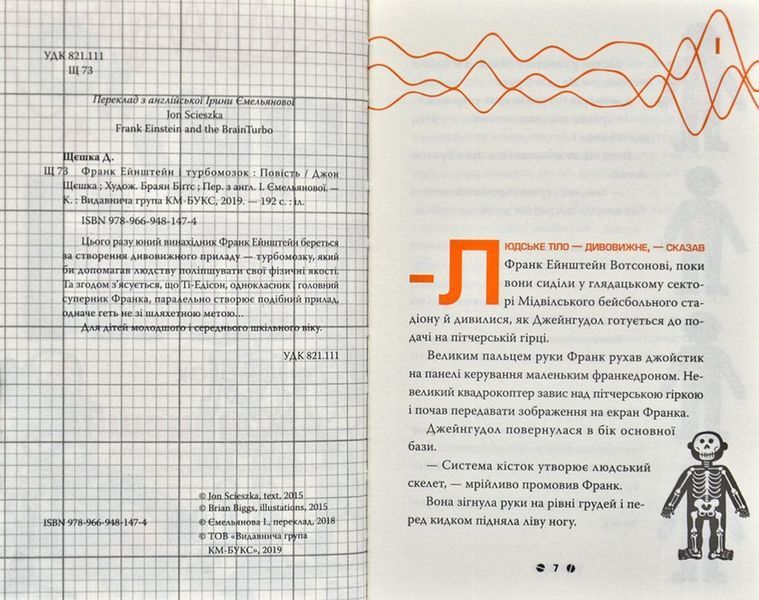 УДК 821.111
Щ 73
Переклад з англійської Ірини Ємельянової
Jon Scieszka
Frank Einstein and the BrainTurbo
Щєшка Д.
Щ 73 Франк Ейнштейн і турбомозок : Повість / Джон
Щєшка ; Худож. Браян Біґґс ; Пер. з англ. І. Ємельянової. —
К. : Видавнича група КМ-БУКС, 2019. — 192 с. : іл.
ISBN 978-966-948-147-4
Цього разу юний винахідник Франк Ейнштейн береться
за створення дивовижного приладу — турбомозку, який
би допомагав людству поліпшувати свої фізичні якості.
Та згодом з’ясується, що Ті-Едісон, однокласник і головний
суперник Франка, паралельно створює подібний прилад,
одначе геть не зі шляхетною метою...
Для дітей молодшого і середнього шкільного віку.
УДК 821.111
© Jon Scieszka, text, 2015
© Brian Biggs, illustrations, 2015
ISBN 978-966-948-147-4
© Ємельянова І., переклад, 2018
© ТОВ «Видавнича група
КМ-БУКС», 2019
1
–ЛЮДСЬКЕ ТІЛО — ДИВОВИЖНЕ, — СКАЗАВ
Франк Ейнштейн Вотсонові, поки
вони сиділи у глядацькому секто-
рі Мідвільського бейсбольного ста-
діону й дивилися, як Джейнгудол готується до по-
дачі на пітчерській гірці.
Великим пальцем руки Франк рухав джойстик
на панелі керування маленьким франкедроном. Не-
великий квадрокоптер завис над пітчерською гіркою
і почав передавати зображення на екран Франка.
Джейнгудол повернулася в бік основної
бази.
— Система кісток утворює людський
скелет, — мрійливо промовив Франк.
Вона зігнула руки на рівні грудей і пе-
ред кидком підняла ліву ногу.
7